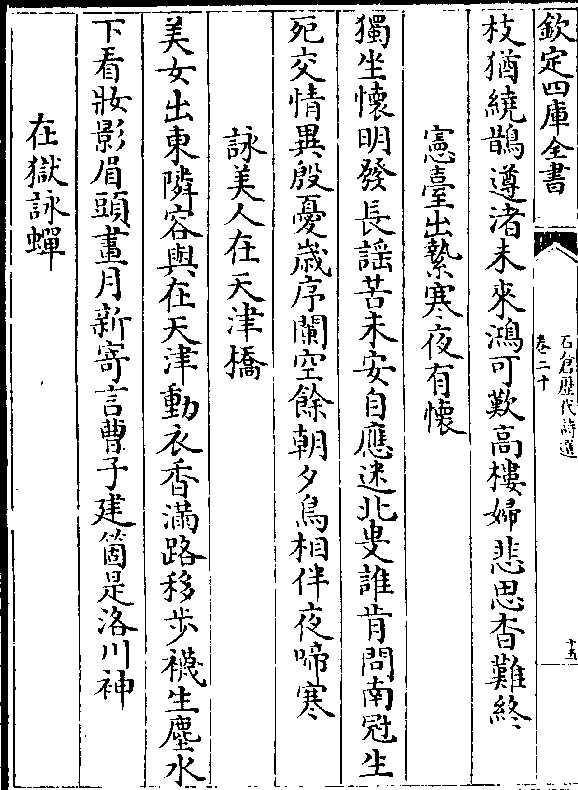 欽定四庫全書
石倉歴代詩選
卷二十
十五
枝猶繞鵲遵渚未來鴻可歎高樓婦悲思杳難終
憲臺出縶寒夜有懷
獨坐懷明發長謡苦未安自應迷北叟誰肯問南冠生
死交情異殷憂歲序闌空餘朝夕鳥相伴夜啼寒
詠美人在天津橋
美女出東隣容與在天津動衣香滿路移步襪生塵水
下看妝影眉頭畫月新寄言曹子建箇是洛川神
在獄詠蟬